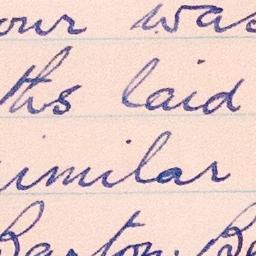 our was
ths laid
similar
Barton. Be